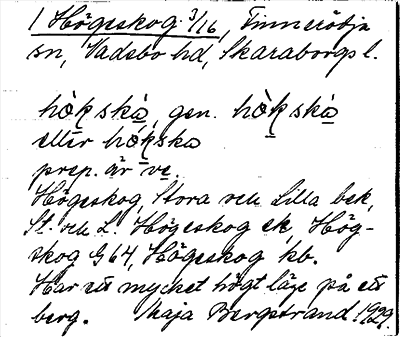 1 Högeskog 3/16, Finnerödja
sn, Vadsbo hd, Skaraborgs l.
hò̀kskà, gen. hò̀kskà
eller hókska
prep. är ve.
Högeskog, Stora och Lilla bek,
St. och L. Högeskog ek, Hög-
skog G 64, Högeskog kb.
Har ett mycket högt läge på ett
berg. Maja Bergstrand. 1929.